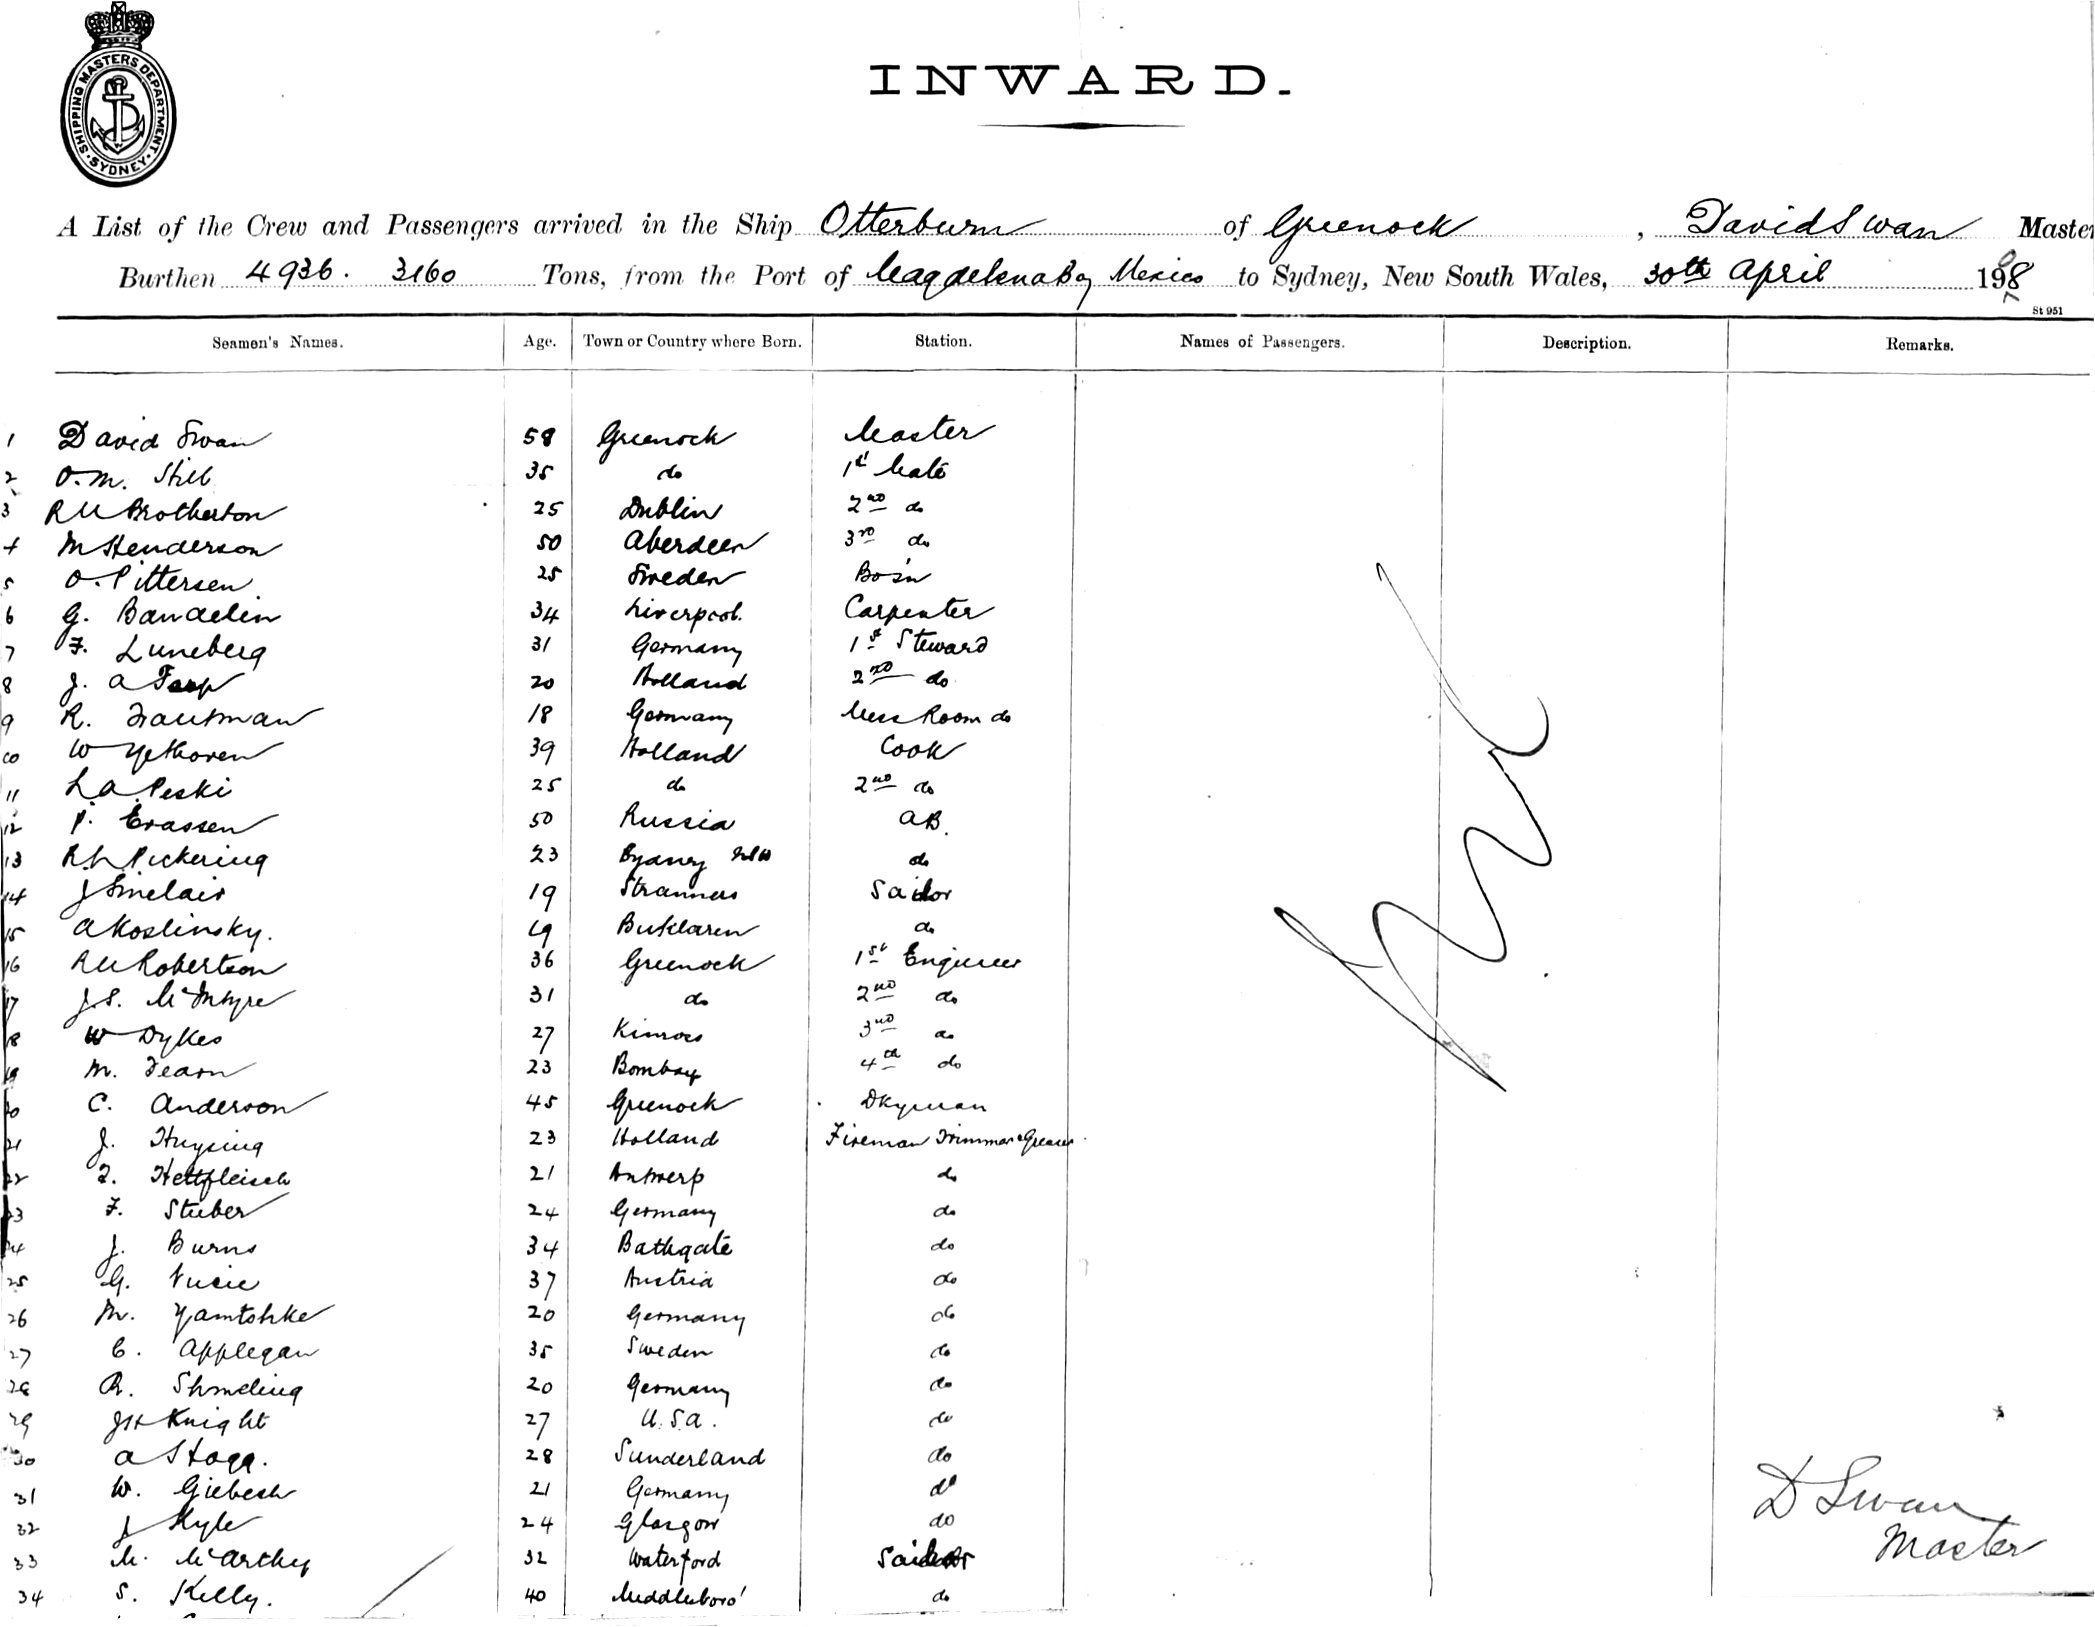 SHIPPING MASTERS DEPARTMENT. SYDNEY
INWARD.
A List of the Crew and Passengers arrived in the Ship Otterburn of Greenock, David Swan Master
Burthen 4936. 3160 Tons, from the Port of Magdelena Bay Mexico to Sydney, New South Wales, 30th April 1908
St 951
Seamen's Names. Age. Town or Country where Born. Station. Names of Passengers. Description. Remarks.
1 David Swan 58 Greenock Master
2 O. M. Hill 35 do 1st Mate
3 R M Brotherton 25 Dublin 2nd do
4 M Henderson 50 Aberdeen 3rd do
5 O. Pittersen 25 Sweden Bo's'n
6 G. Bandelin 34 Liverpool. Carpenter
7 F. Luneberg 31 Germany 1st Steward
8 J. A 20 Holland 2nd do
9 R. Trautman 18 Germany Mess Room do
10 W 39 Holland Cook
11 L. A. Peski 25 do 2nd do
12 P. Erassen 50 Russia AB.
13 R L Pickering 23 Sydney NSW do
14 J Sinclair 19 Stranners Sailor
15 A Koslinsky. 19 do
16 R M Robertson 36 Greenock 1st Engineer
17 J. S. McIntyre 31 do 2nd do
18 W Dykes 27 Kinross 3rd do
19 M. Fearn 23 Bombay 4th do
20 C. Anderson 45 Greenock Dkyman
21 J. Huysing 23 Holland Fireman Trimmer & Greaser
22 Hettfleisch 21 Antwerp do
23 F. Stuber 24 Germany do
24 J. Burns 34 Bathgate do
25 G. 37 Austria do
26 M. Yamtshke 20 Germany do
27 C. Applegan 35 Sweden do
28 R. Shmeling 20 Germany do
29 J H Knight 27 U.S.A. do
30 A Stagg. 28 Sunderland do
31 W. Giebesh 21 Germany do
32 J Kyle 24 Glasgow do
33 M. McArthy 32 Waterford Sailor
34 S. Kelly. 40 Middlesboro' do
D Swan
Master